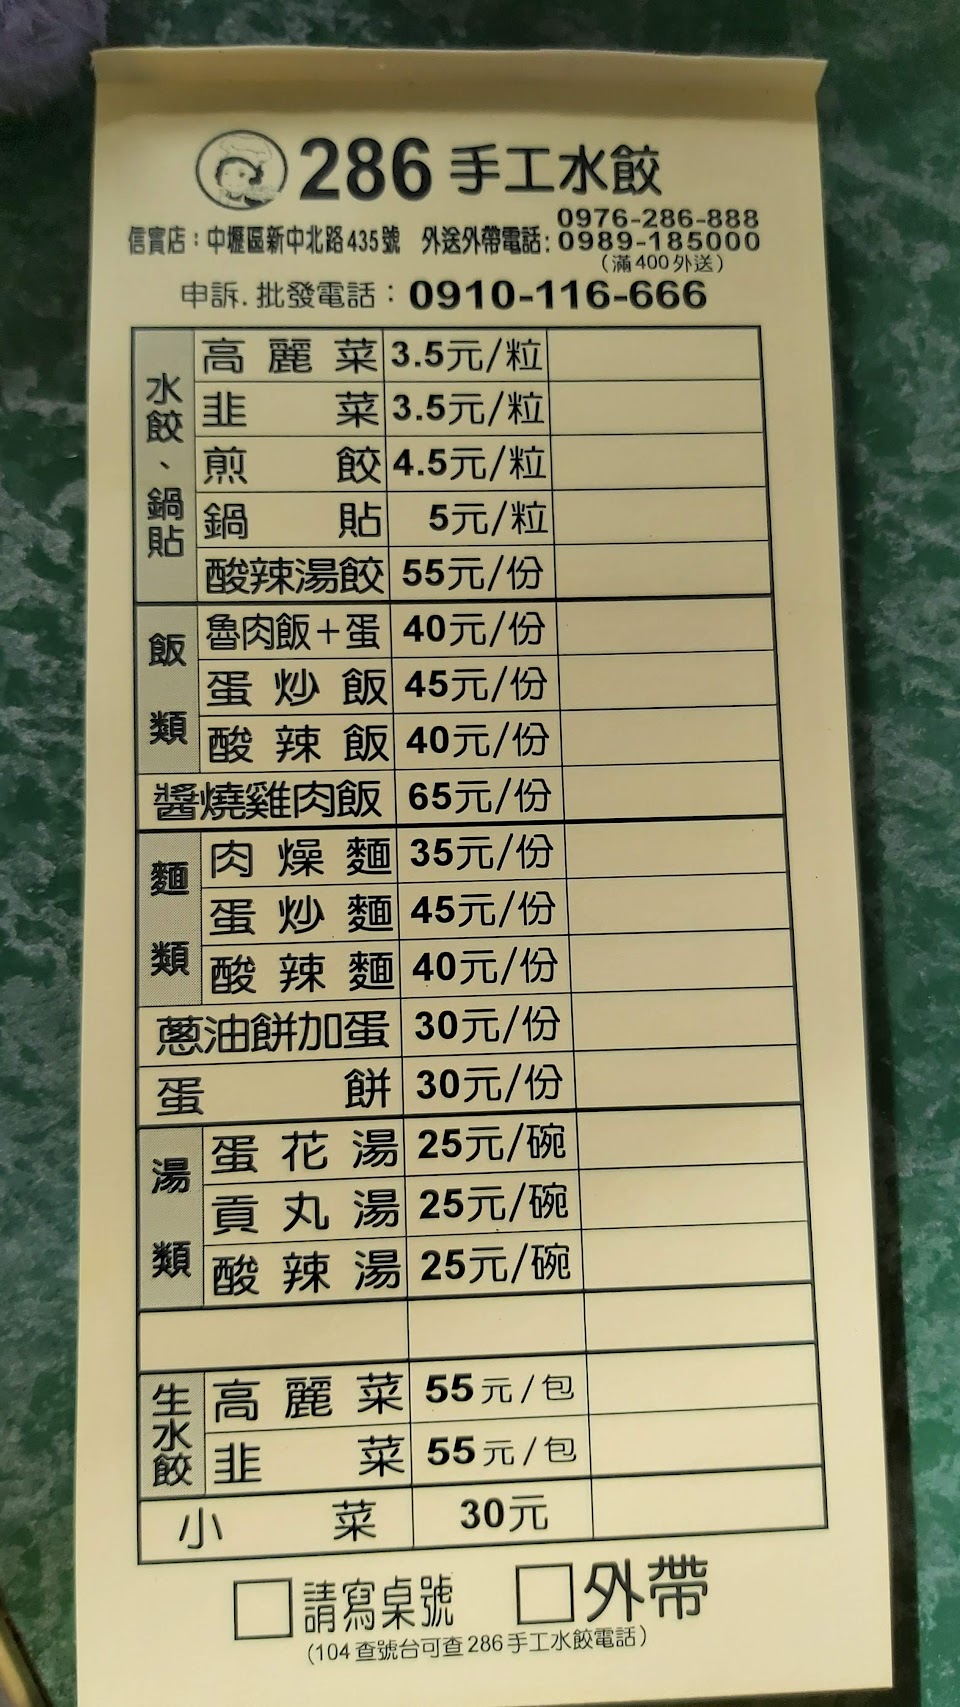 286 手工水餃
信實店：中壢區新中北路435號 外送外帶電話：0976-286-888
0989-185000
（滿400外送）
申訴.批發電話：0910-116-666
水餃、鍋貼
高麗菜 3.5元/粒
韭菜 3.5元/粒
煎餃 4.5元/粒
鍋貼 5元/粒
酸辣湯餃 55元/份
飯類
魯肉飯+蛋 40元/份
蛋炒飯 45元/份
酸辣飯 40元/份
醬燒雞肉飯 65元/份
麵類
肉燥麵 35元/份
蛋炒麵 45元/份
酸辣麵 40元/份
蔥油餅加蛋 30元/份
蛋餅 30元/份
湯類
蛋花湯 25元/碗
貢丸湯 25元/碗
酸辣湯 25元/碗
生水餃
高麗菜 55元/包
韭菜 55元/包
小菜 30元
請寫桌號 外帶
（104查號台可查286手工水餃電話）